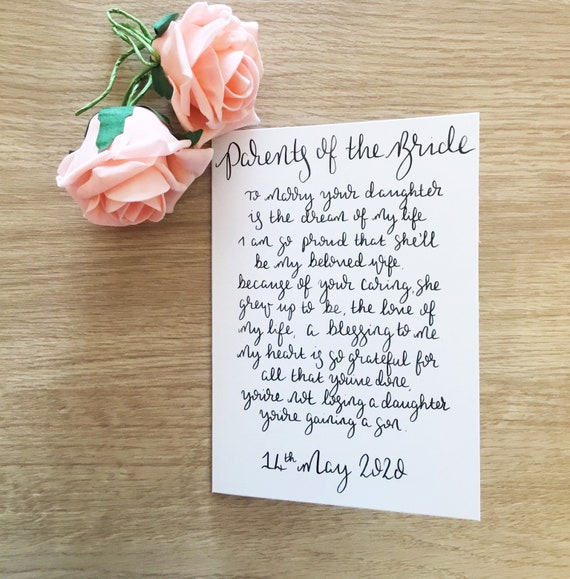 Parents of the Bride
to marry your daughter
is the dream of my life
I am so proud that she'll
be my beloved wife.
because of your caring, she
grew up to be, the love of
my life, a blessing to me
my heart is so grateful for
all that youve done,
you're not losing a daughter
you're gaining a son.
14th May 2020